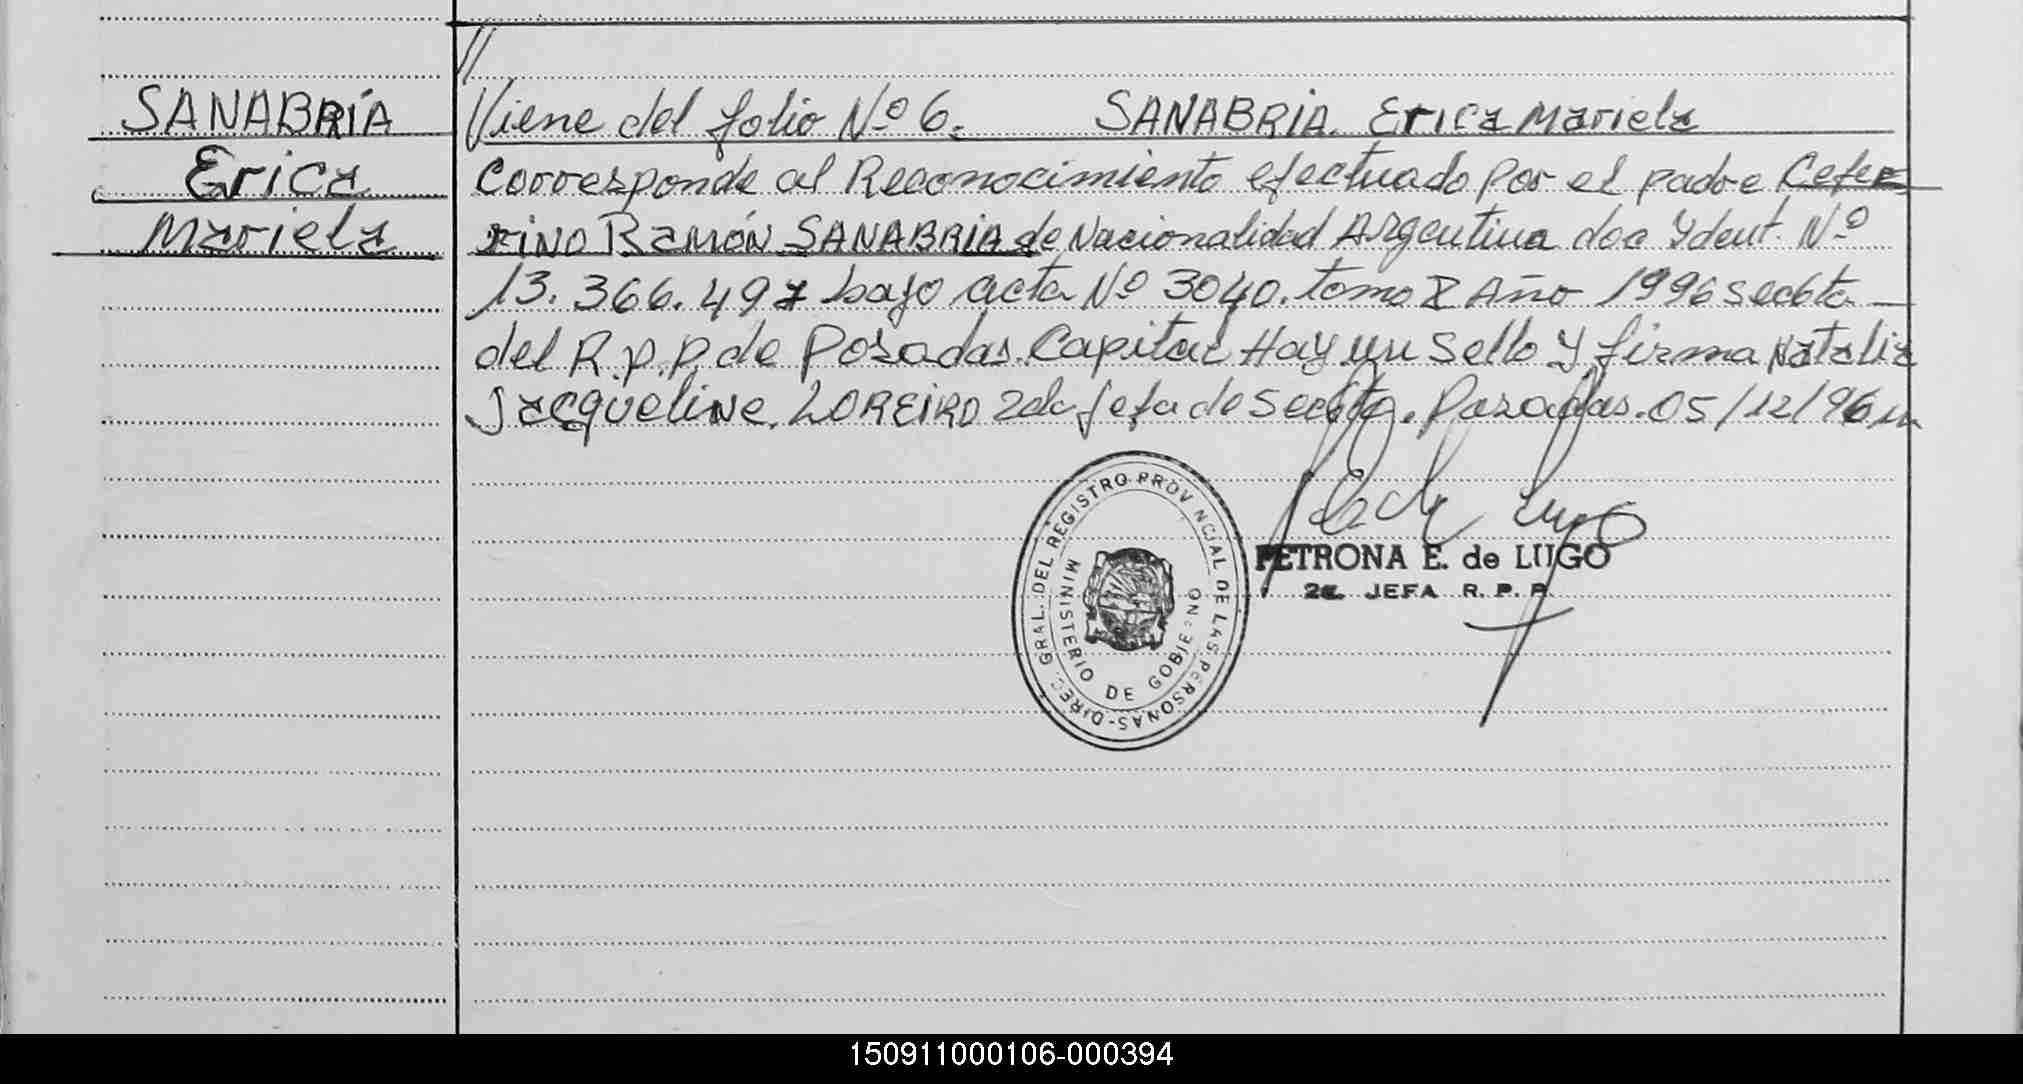 //
SANABRÍA
Erica
Mariela
Viene del folio Nº 6. SANABRIA. Erica Mariela
Corresponde al Reconocimiento efectuado por el padre Cefe
rino Ramón SANABRIA de Nacionalidad Argentina doc Ydent. Nº
13.366.497 bajo acta Nº 3040. tomo I Año 1996 secc6ta
del R.p.p. de Posadas. Capital Hay un Sello y firma Natalia
Jacqueline. LOREIRO 2da Jefa de Secc6ta. Posadas. 05/12/96
DIREC. GRAL. DEL REGISTRO PROVINCIAL DE LAS PERSONAS-
MINISTERIO DE GOBIERNO
PETRONA E. de LUGO
2da. JEFA R. P. P.
150911000106-000394